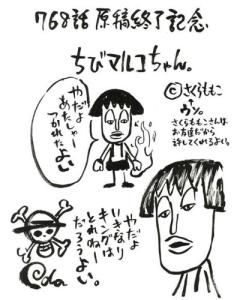 768話 原稿終了記念
ちびマルコちゃん。
©さくらももこ
↑
ウソ。
さくらももこさんは
お友達だから
許してくれるよい。
やだよ
あたしゃー
つかれた
よい
やだよ
いきなり
キングは
とれねー
だろうよい。
Oda